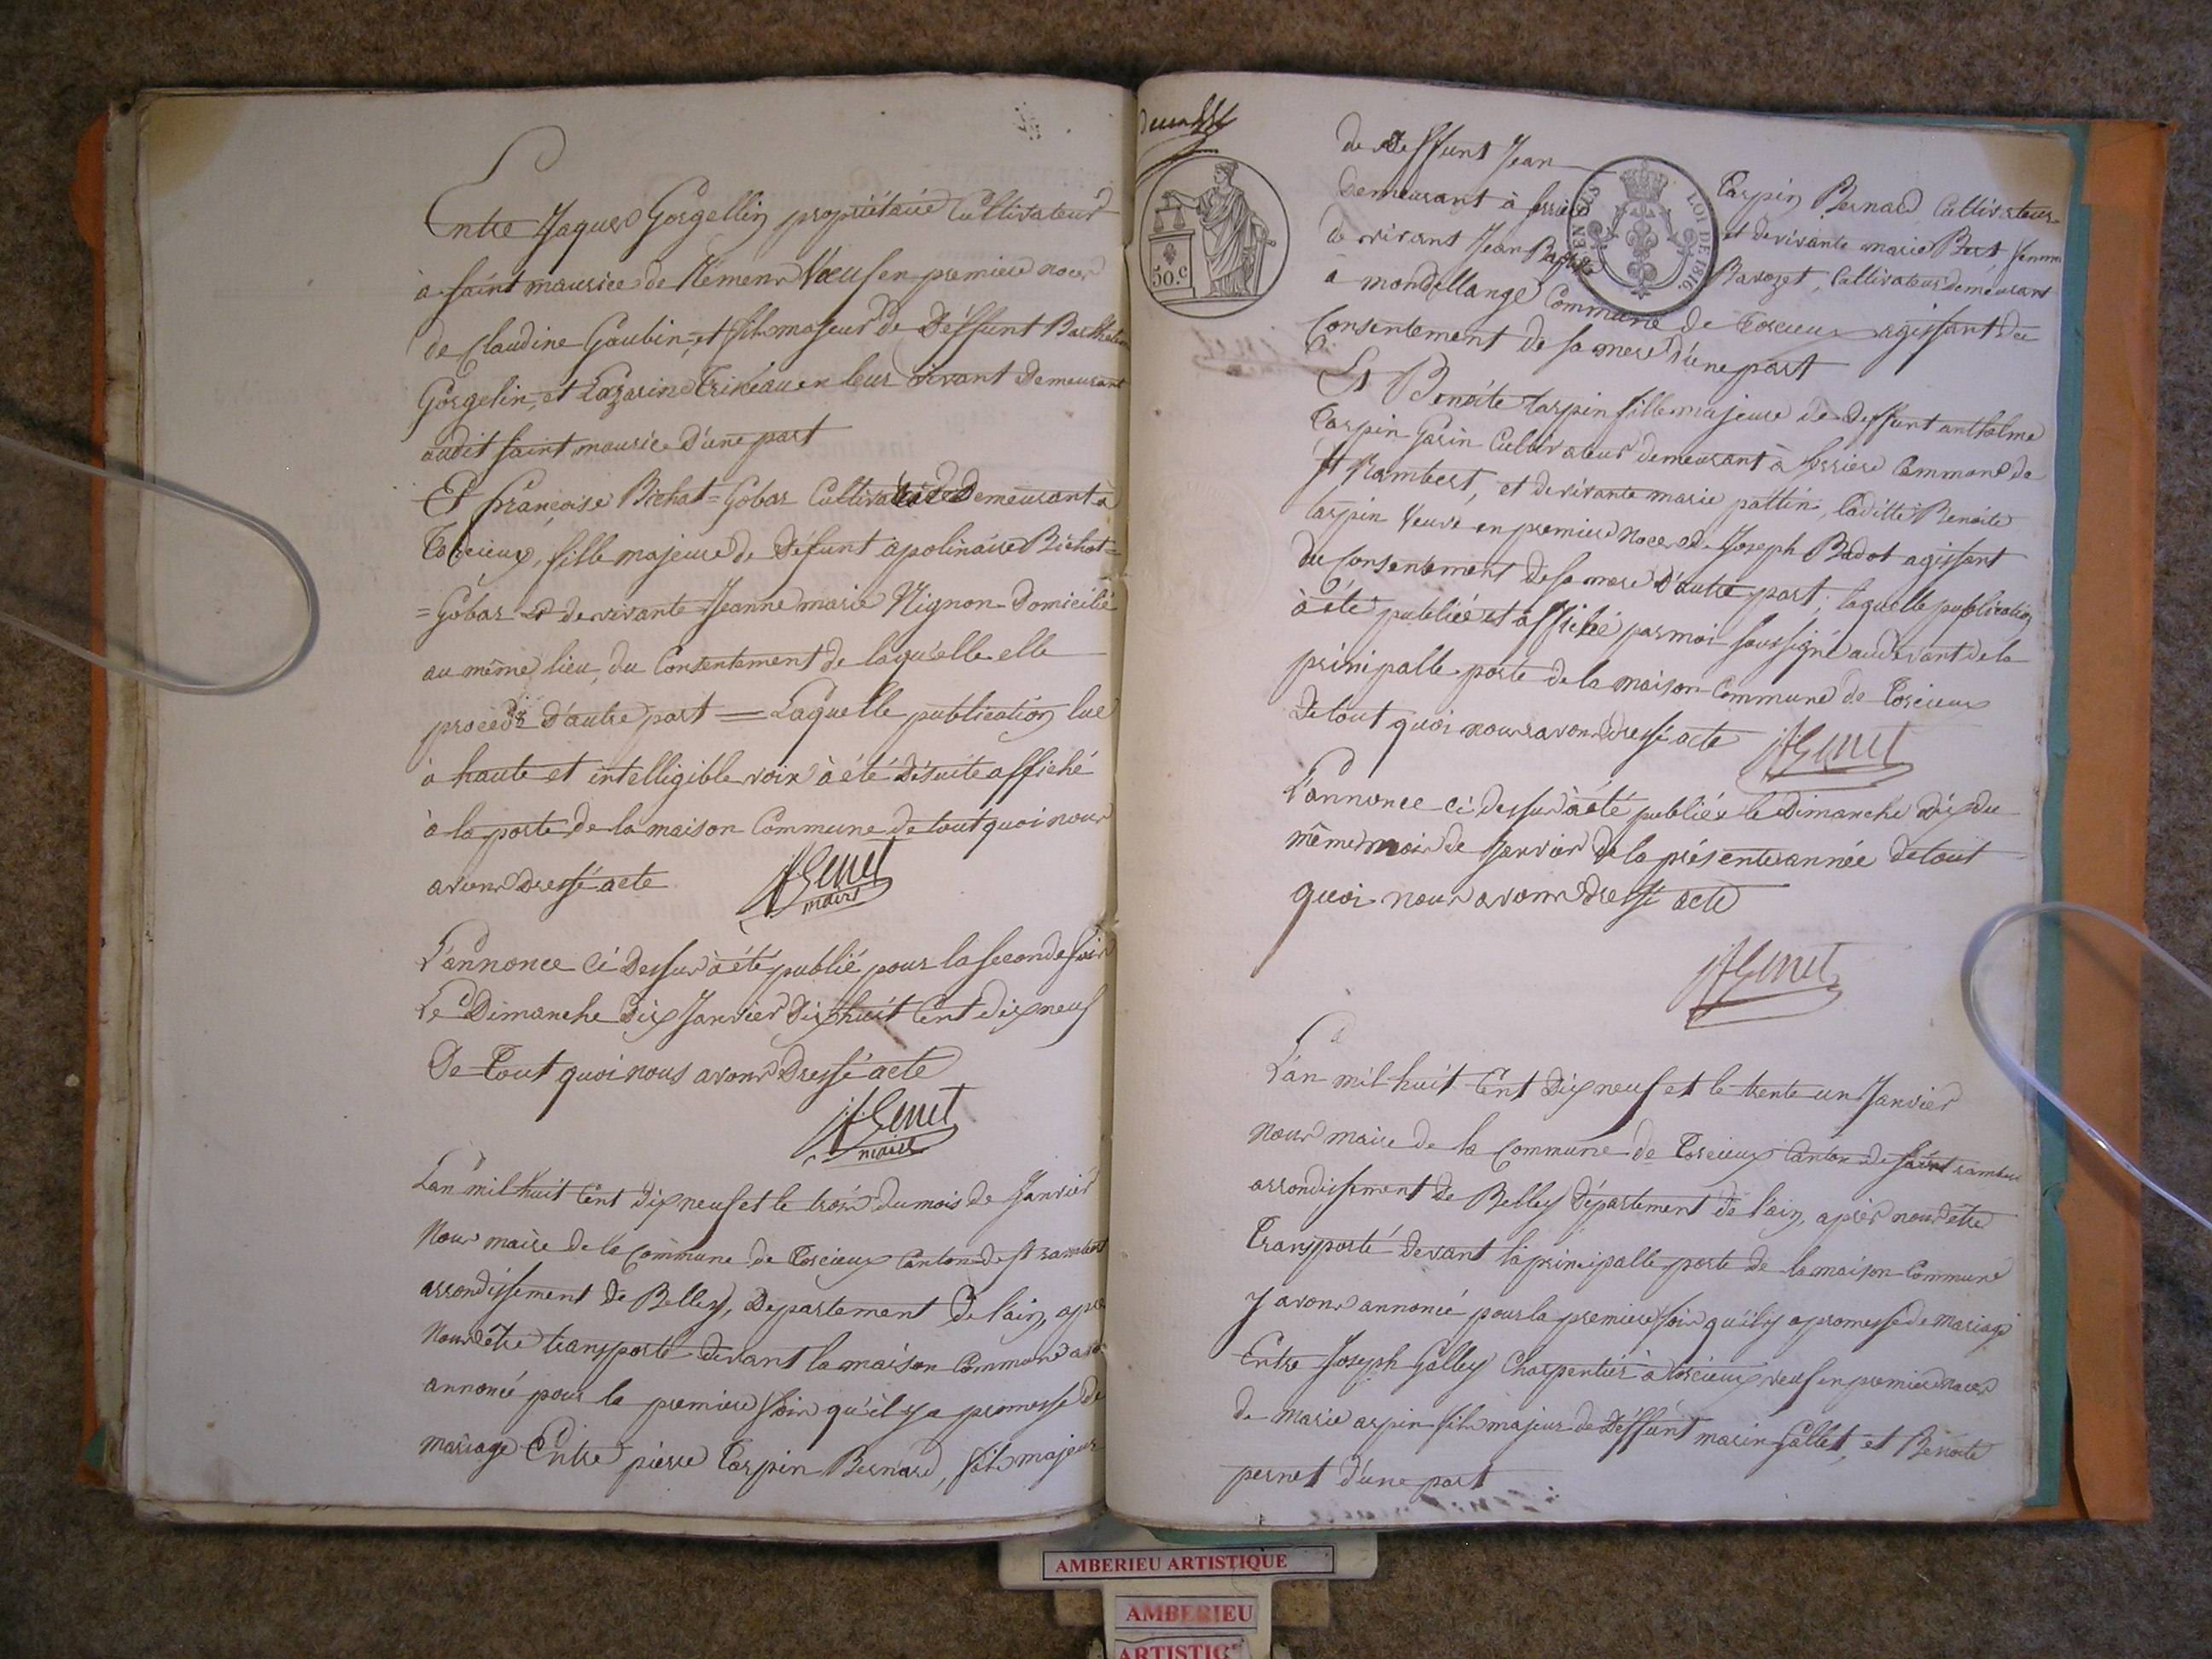 Entre Jaques Gorgellin propriétaire Cultivateur
à saint maurice de Rémens Vœuf en premiere noces
de Claudine Goubin, et fils majeur de Déffunt Barthelem
Gorgelin, et Lazarine en leur vivant Demeurant
audit saint maurice D'une part
Et françoise Bichat=Gobar Cultivatrice Demeurant à
Torcieux, fille majeure de Défunt apolinaire Bichat=
=Gobar et de vivante Jeanne marie Mignon Domicilié
au même lieu, du Consentement de laqu'elle elle
procede D'autre part = Laquelle publication lue
à haute et intelligible voix à été Desuite affiché
à la porte de la maison Commune de tout quoi nous
avons Dressé acte
JAGenet
maire
L'annonce Ci Dessus à été publié pour la seconde fois
Le Dimanche Dix Janvier Dix huit Cent dix neuf
De Tout quoi nous avons Dressé acte
JAGenet
maire
L'an mil huit Cent dix neuf et le trois du mois de Janvier
Nous maire de la Commune de Torcieux Canton de st rambert
arrondissement de Belley, Departement de l'ain, apres
Nous être transporté devant la maison Commune avo
annoncé pour la premiere fois qu'il y a promesse de
mariage Entre pierre Tarpin Bernard, fils majeur
50.c
LOI DE 1816
de deffunt Jean Tarpin Bernard Cultivateur
Demeurant à et de vivante marie Bert, femme
de vivant Jean Baptiste Bavozet, Cultivateur demeurant
à mondellange Commune de Torcieux agissant du
Consentement de sa mere D'une part
Et Benoite tarpin fille majeure de Deffunt anthelme
Tarpin Garin Cultivateur demeurant à Serriere Commune de
st Rambert, et de vivante marie pattin, laditte Benoite
tarpin Veuve en premiere Noces de Joseph Badot agissant
du Consentement de sa mere D'autre part; laquelle publication
à été publiée et affichée par moi soussigné au devant de la
prinipalle porte de la maison Commune de Torcieux
De tout quoi nous avons Dressé acte JAGenet
L'annonce ci dessus à été publiée le Dimanche Dix du
même mois de Janvier de la présente année de tout
quoi nous avons dressé acte
JAGenet
L'an mil huit Cent Dix neuf et le trente un Janvier
Nous maire de la Commune de Torcieux Canton de saint rambert
arrondissement de Belley Département de l'ain, après nous être
Transporté devant la prinipalle porte de la maison Commune
y avons annoncé pour la premiere fois qu'il y a promesse de mariage
Entre Joseph Galley Charpentier à torcieux veuf en premiere noces
de Marie arpin fils majeur de Déffunt marin Gallet, et Benoite
pernet d'une part
AMBERIEU ARTISTIQUE
AMBERIEU
ARTISTIQ